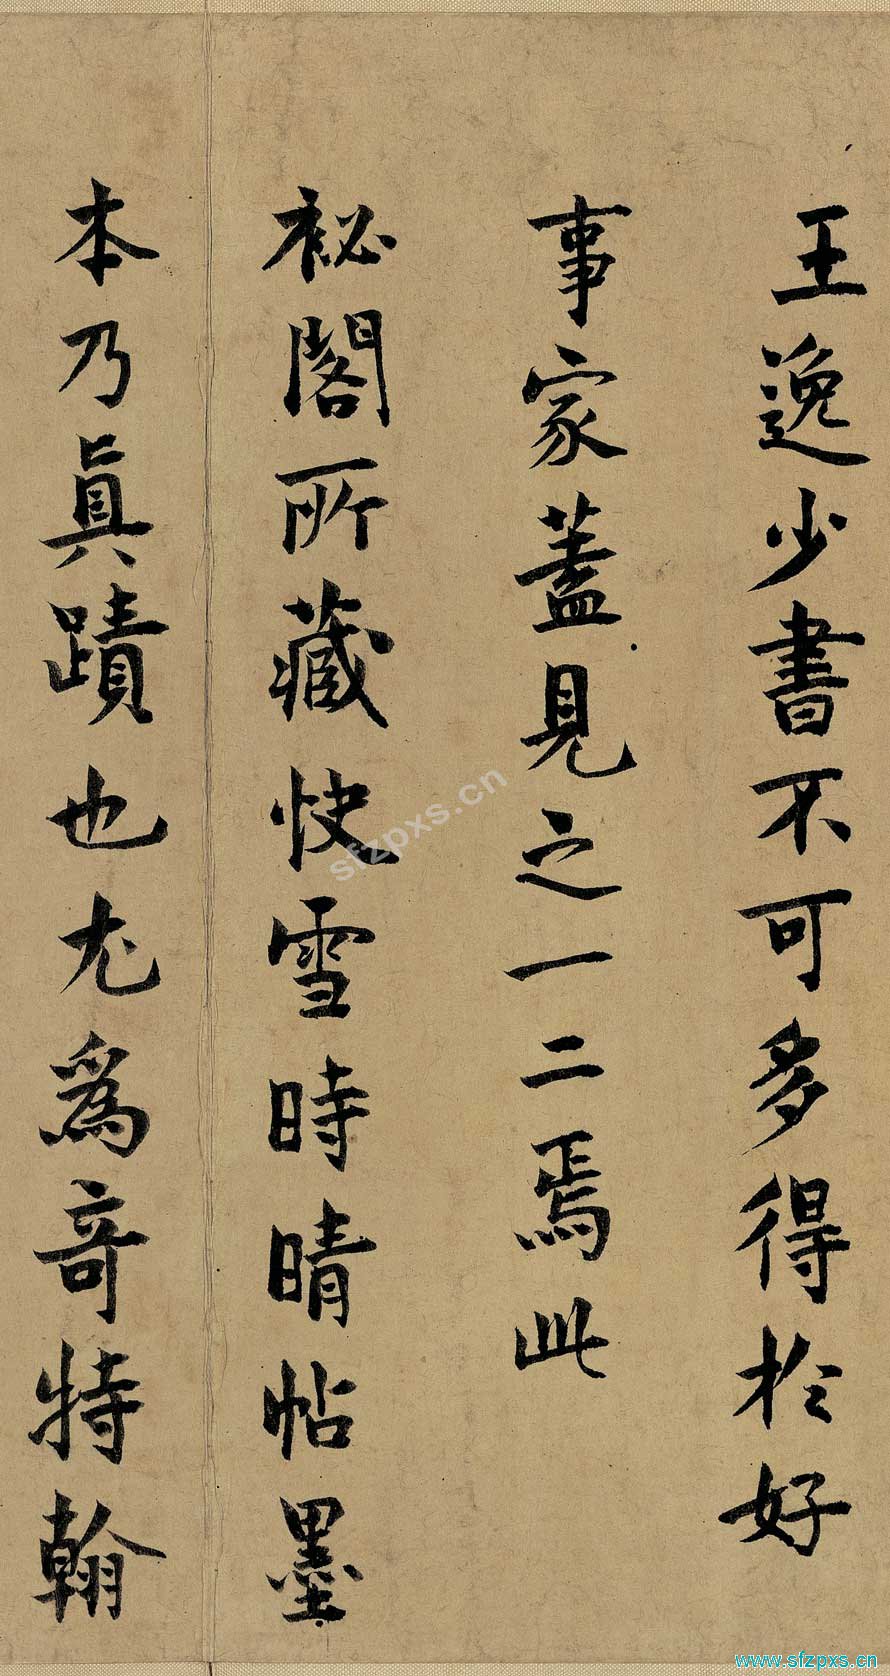 王逸少書不可多得於好
事家蓋見之一二焉此
祕閣所藏快雪時晴帖墨
本乃眞蹟也尤爲奇特翰
sfzpxs.cn
www.sfzpxs.cn